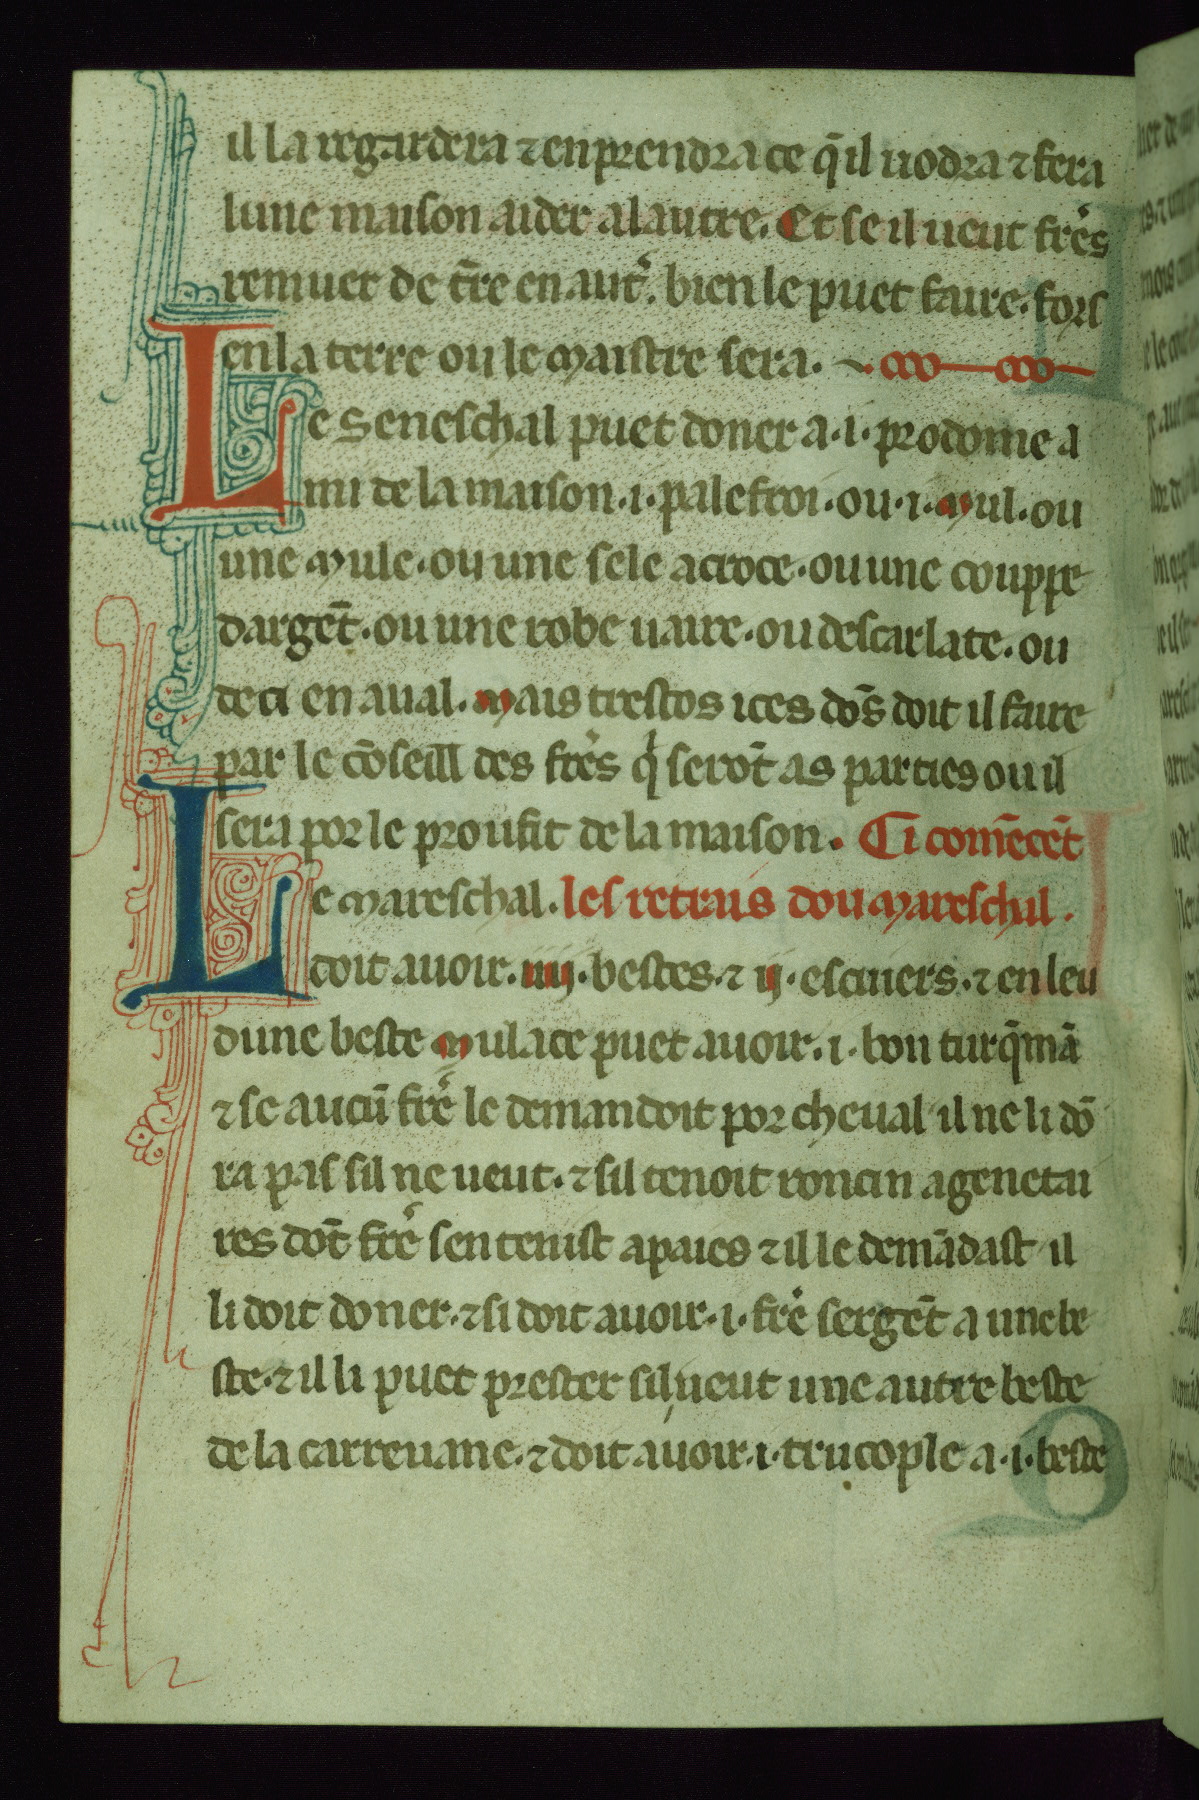 il la regardera ⁊ enprendra ce q̄ il uodra ⁊ fera
lune maison aider alautre. Et se il ueut frēs
remuer de t̄re en aut̉. bien le puet faire. fors
en la terre ou le maistre sera.
Le seneschal puet doner a .i. prodome a
mi de la maison .i. palefroi. ou .i. mul. ou
une mule. ou une sele acroce. ou une couppe
dargēt. ou une robe uaire. ou descarlate. ou
de ci en aual. mais trestos ices dōs doit il faire
par le cōseill des frēs q̍ serōt as parties ou il
sera por le proufit de la maison. Ci comēcēt
Le mareschal. les retrais dou mareschal.
doit auoir .iiij. bestes. ⁊ ij. escuiers. ⁊ en leu
dune beste mulace puet auoir .i. bon turq̄mā
⁊ se aucū frē le demandoit por cheual il ne li dō
ra pas sil ne ueut. ⁊ sil tenoit roncin a genetai
res dōt frē sen tenist apaies ⁊ il le demādast il
li doit doner. ⁊ si doit auoir .i. frē sergēt a une be
ste. ⁊ il li puet prester sil ueut une autre beste
de la carreuane. ⁊ doit auoir .i. trucople a .i. beste